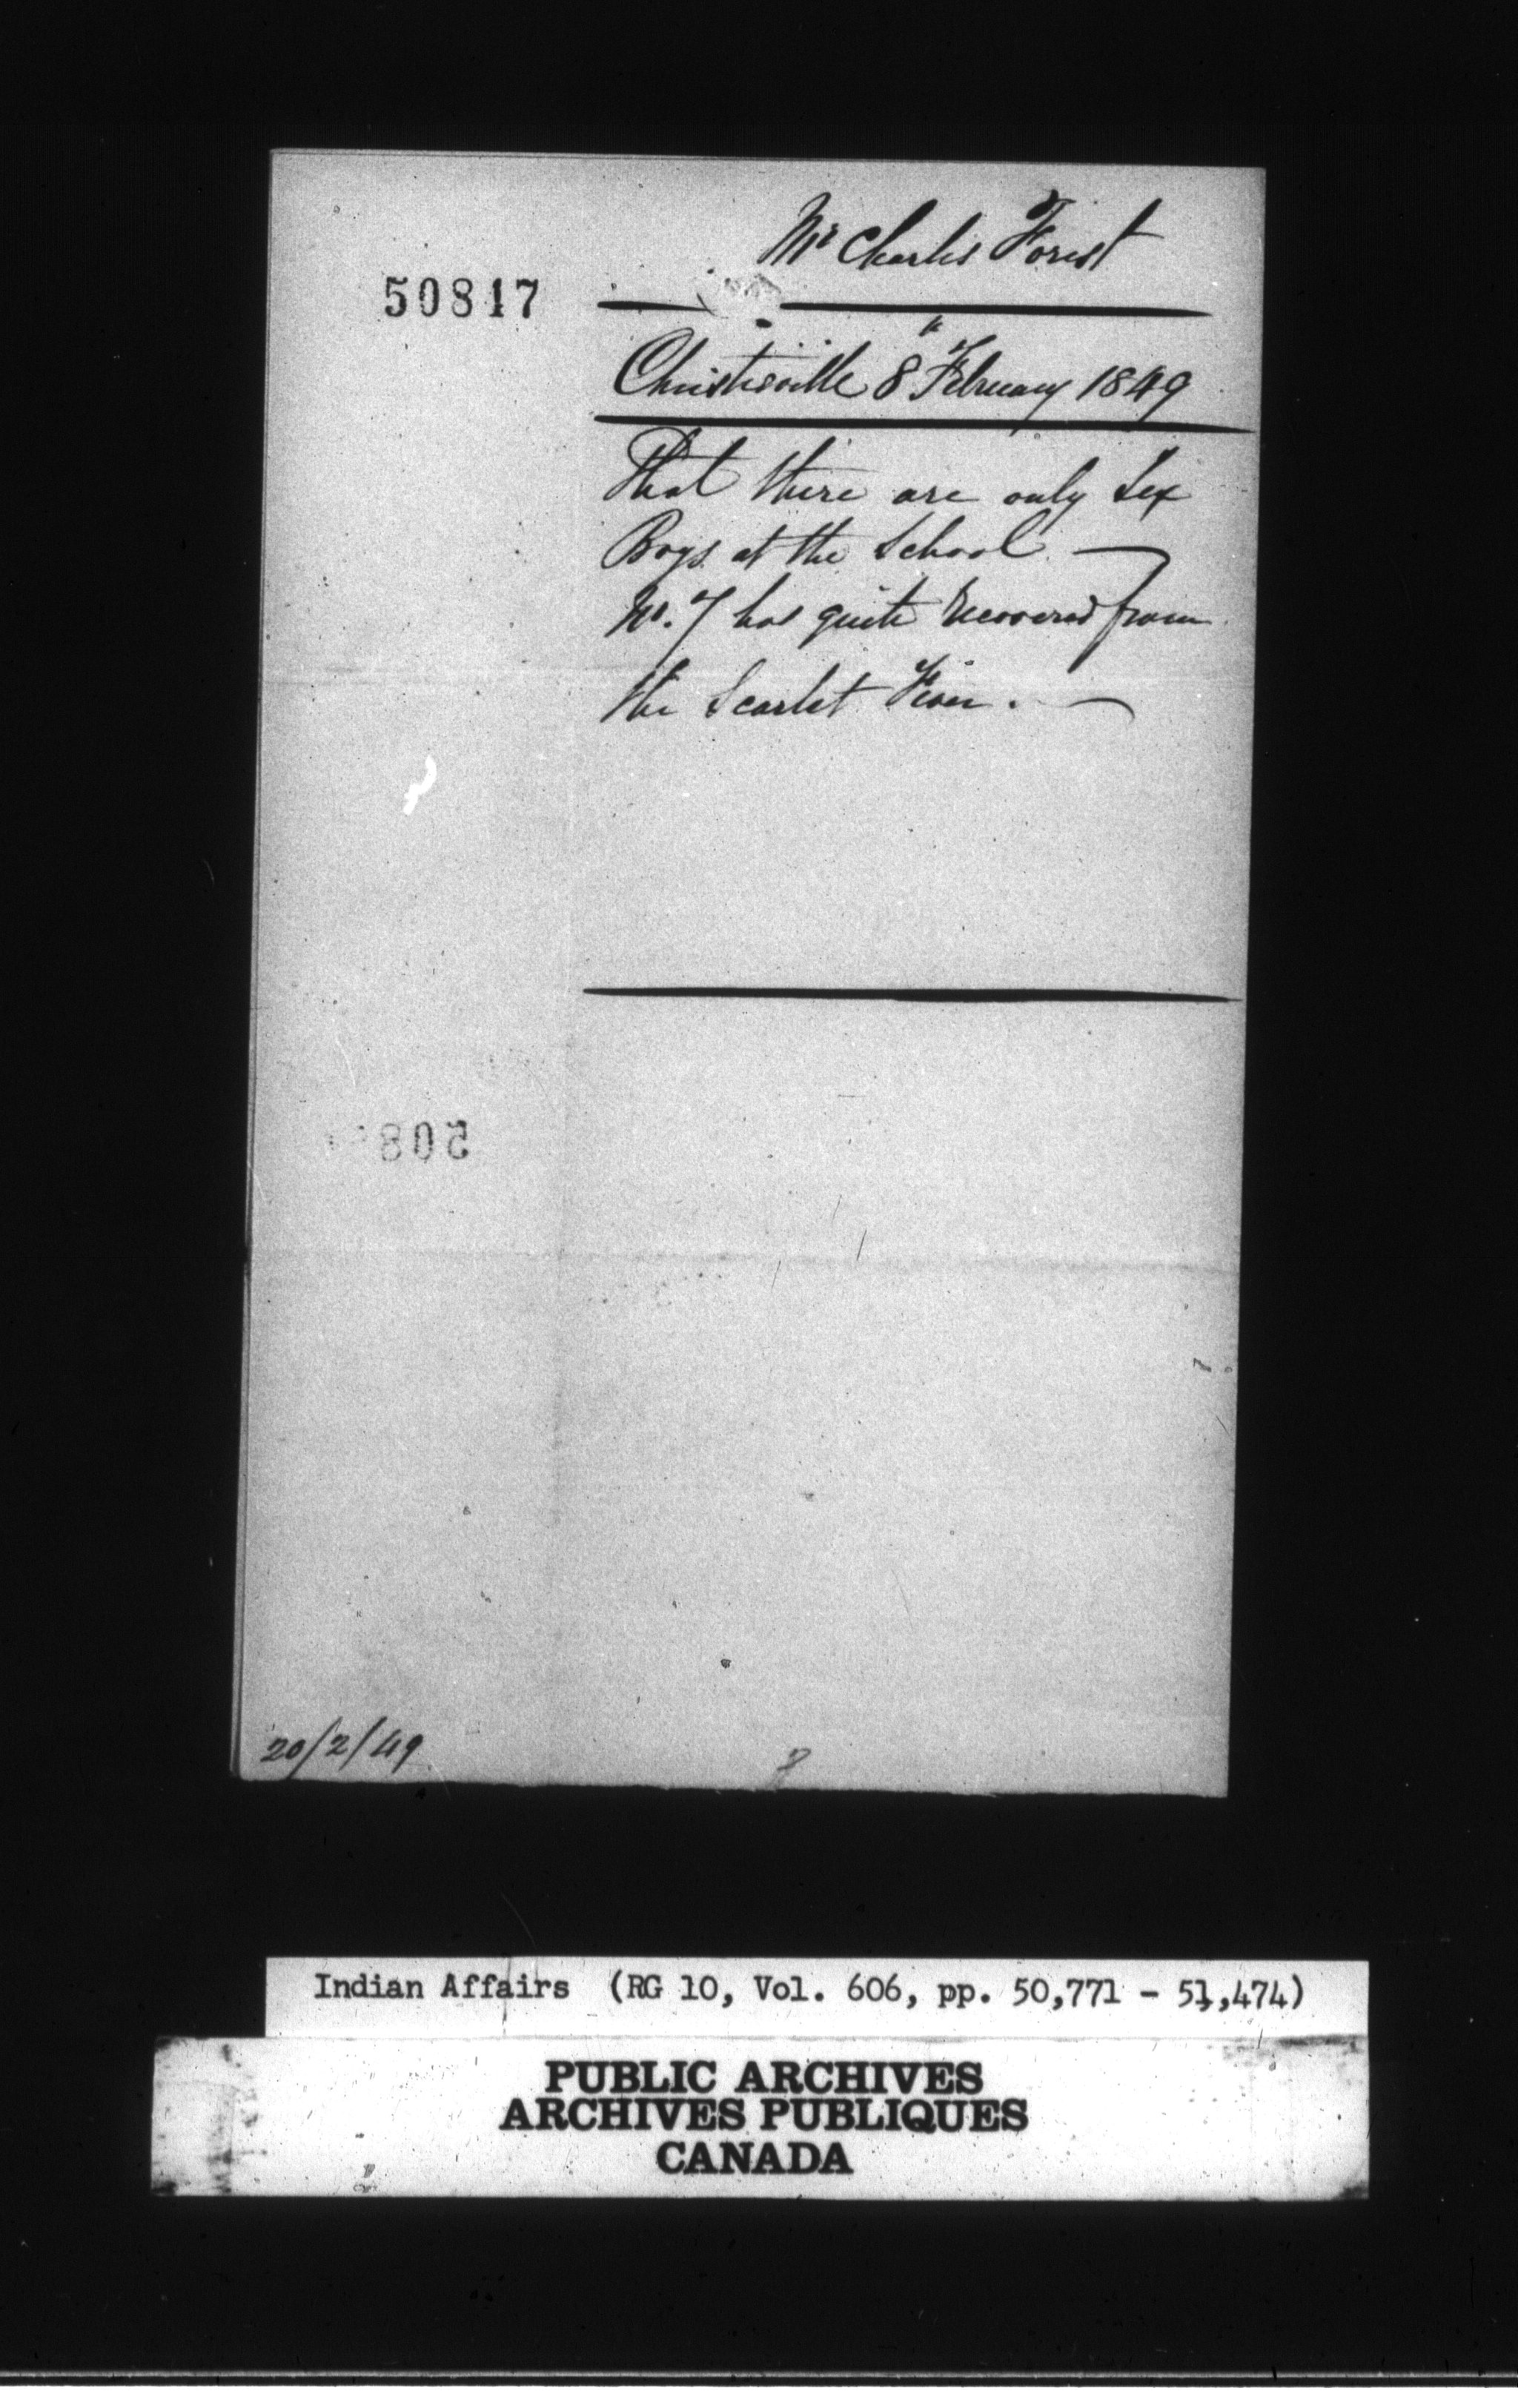 Mr Charles Forest
50817
Christieville 8th February 1849
That there are only Six
Boys at the School
Mr. F has quite recovered from
the Scarlet Fever.
508
20/2/49
8
Indian Affairs (RG 10, Vol. 606, pp. 50,771 - 51,474)
PUBLIC ARCHIVES
ARCHIVES PUBLIQUES
CANADA